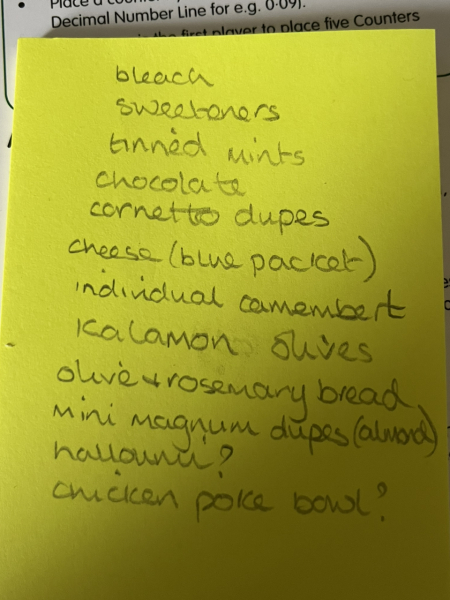 Decimal Number Line for e.g. 0·09).
the first player to place five Counters
bleach
sweeteners
tinned mints
chocolate
cornetto dupes
cheese (blue packet)
individual camembert
Kalamon olives
olive + rosemary bread
mini magnum dupes (almond)
halloumi?
chicken poke bowl?